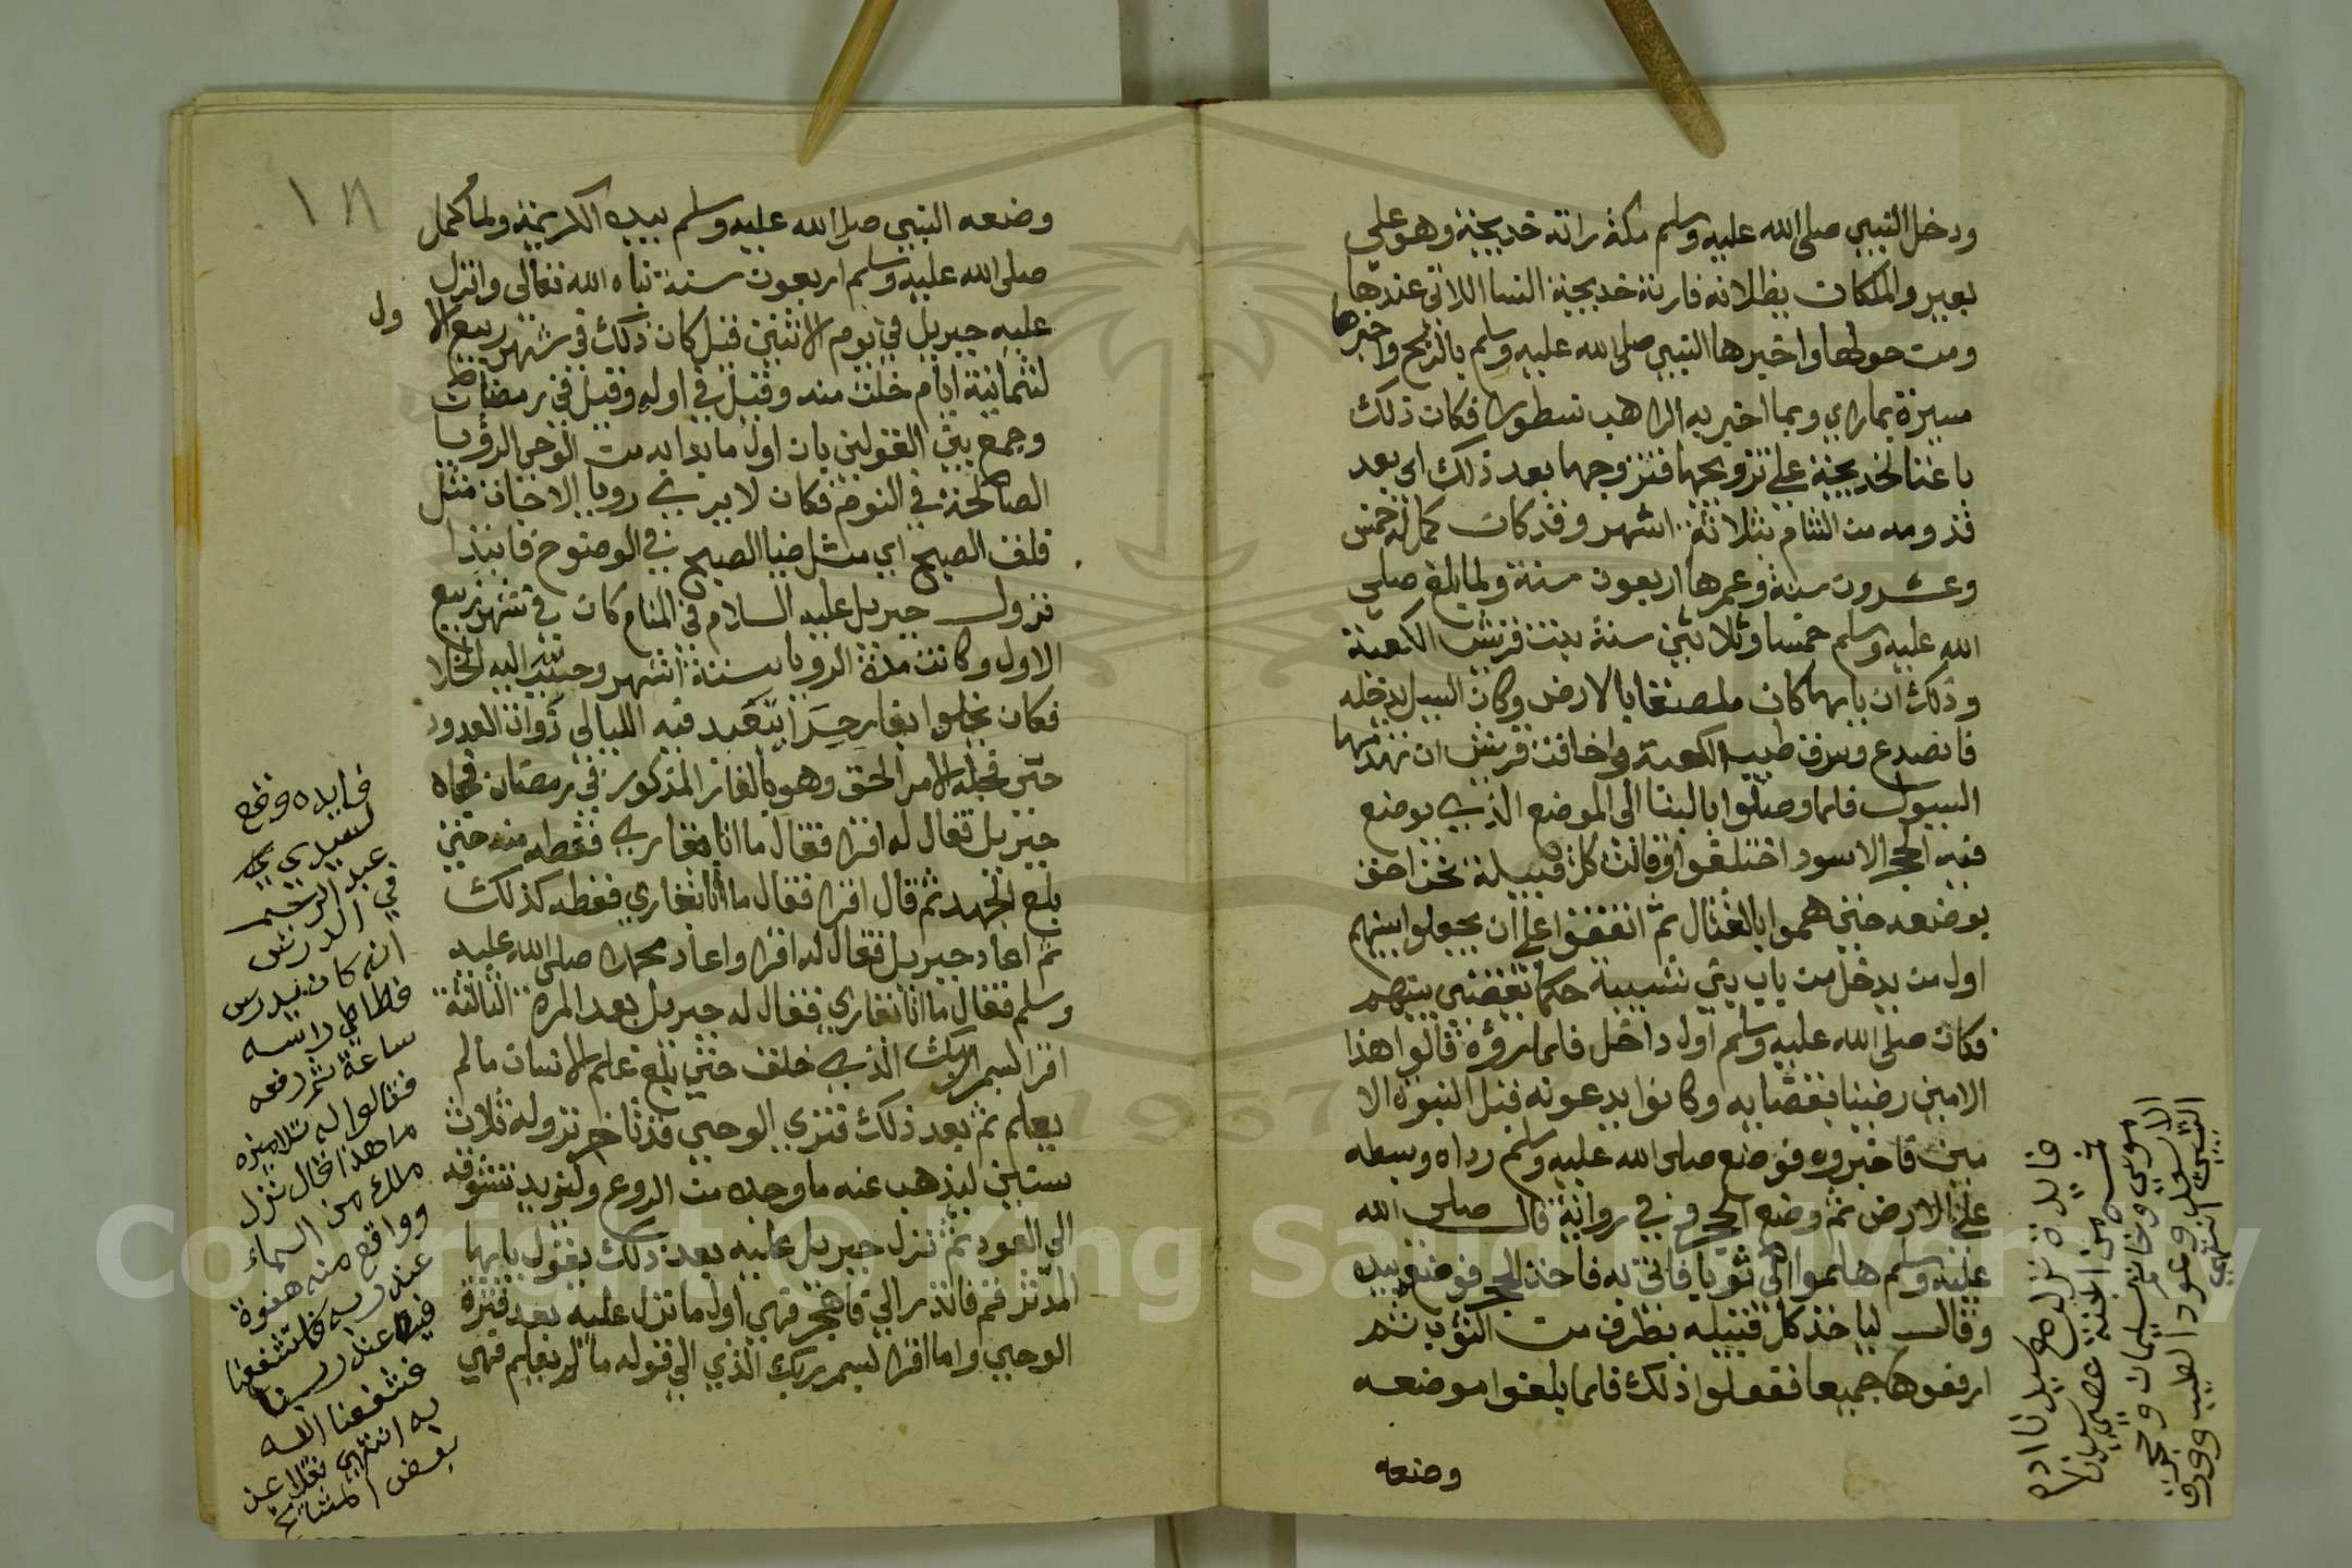 ودخل النبي صلى الله عليه وسلم مكة راته خديجة وهو على
بعير والملكان يظلانه فارته خديجة النسا اللاتي عندها
ومن حولها واخبرها النبي صلى الله عليه وسلم بالربح واخبرها
ميسرة بماراي وبما اخبر به الراهب نسطورا فكان ذلك
باعثا لخديجة على تزويجها فتزوجها بعد ذلك اي بعد
قدومه من الشام بثلاثة اشهر وقد كان كمل له خمس
وعشرون سنة وعمرها اربعون سنة ولما بلغ صلى
الله عليه وسلم خمسا وثلاثين سنة بنت قريش الكعبة
وذلك ان بابها كان ملصقا بالارض وكان السيل يدخله
فانصدع وسرق طيب الكعبة وخافت قريش ان تهدمها
السيول فلما وصلوا بالبنا الى الموضع الذي يوضع
فيه الحجر الاسود اختلفوا وقالت كل قبيلة نحن احق
بوضعه حتى هموا بالقتال ثم اتفقوا على ان يجعلوا بينهم
اول من يدخل من باب بني شيبة حكما يقضي بينهم
فكان صلى الله عليه وسلم اول داخل فلما راوه قالوا هذا
الامين رضينا بقضايه وكانوا يدعونه قبل النبوة الا
مين فاخبروه فوضع صلى الله عليه وسلم رداه وبسطه
على الارض ثم وضع الحجر وفي رواية قال صلى الله
عليه وسلم هلموا الي ثوبا فاتي به فاخذ الحجر فوضعه بيده
وقال لياخذ كل قبيله بطرف من الثوب ثم
ارفعوها جميعا ففعلوا ذلك فلما بلغوا موضعه
وضعه
فايدة نزل مع سيدنا ادم
خمسة من الجنة عصى سيدنا
موسى وخاتم سليمان وحجر
الاسعد وعود الطيب وورق
التين انتهى
١٨
وضعه النبي صلى الله عليه وسلم بيده الكريمة ولما كمل
صلى الله عليه وسلم اربعون سنة نباه الله تعالى وانزل
عليه جبريل في يوم الاثنين قبل كان ذلك في شهر ربيع الا ول
لثمانية ايام خلت منه وقيل في اوله وقيل في رمضان
وجمع بين القولين بان اول ما بدا به من الوحي الرؤيا
الصالحة في النوم فكان لا يرى رويا الا جات مثل
فلق الصبح اي مثل ضيا الصبح في الوضوح فابتدا
نزول جبريل عليه السلام في المنام كان في شهر ربيع
الاول وكانت مدة الرويا ستة اشهر وحبب اليه الخلا
فكان يخلوا بغار حرا يتعبد فيه الليالي ذوات العدد
حتى فجاه الامر الحق وهو بالغار المذكور في رمضان فجاه
جبريل فقال له اقرا فقال ما انا بقاري فغطه منه حتى
بلغ الجهد ثم قال اقرا فقال ما انا بقاري فغطه كذلك
ثم اعاد جبريل فقال له اقرا واعاد محمدا صلى الله عليه
وسلم فقال ما انا بقاري فقال له جبريل بعد المرة الثالثة
اقرا باسم ربك الذي خلق حتى بلغ علم الانسان ما لم
يعلم ثم بعد ذلك فتري الوحي فتاخر نزوله ثلاث
سنين ليذهب عنه ما وجده من الروع وليزيد تشوقه
الى العود ثم نزل جبريل عليه بعد ذلك بقول يايها
المدثر قم فانذر الي فاهجر فهي اول ما نزل عليه بعد فترة
الوحي واما اقرا باسم ربك الذي الي قوله ما لم يعلم فهي
فايده وقع
لسيدي
عبد الرحيم
في الدرس
انه كان يدرس
فطاطى راسه
ساعة ثم رفعه
فقالوا له تلاميذه
ما هذا قال نزل
ملك من السماء
وواقع منه هفوة
عند ربه فاستشفعنا
فيه عند ربنا
فشفعنا الله
به انتهى نقلا عن
بعض المشايخ
Copyright © King Saud University
1957